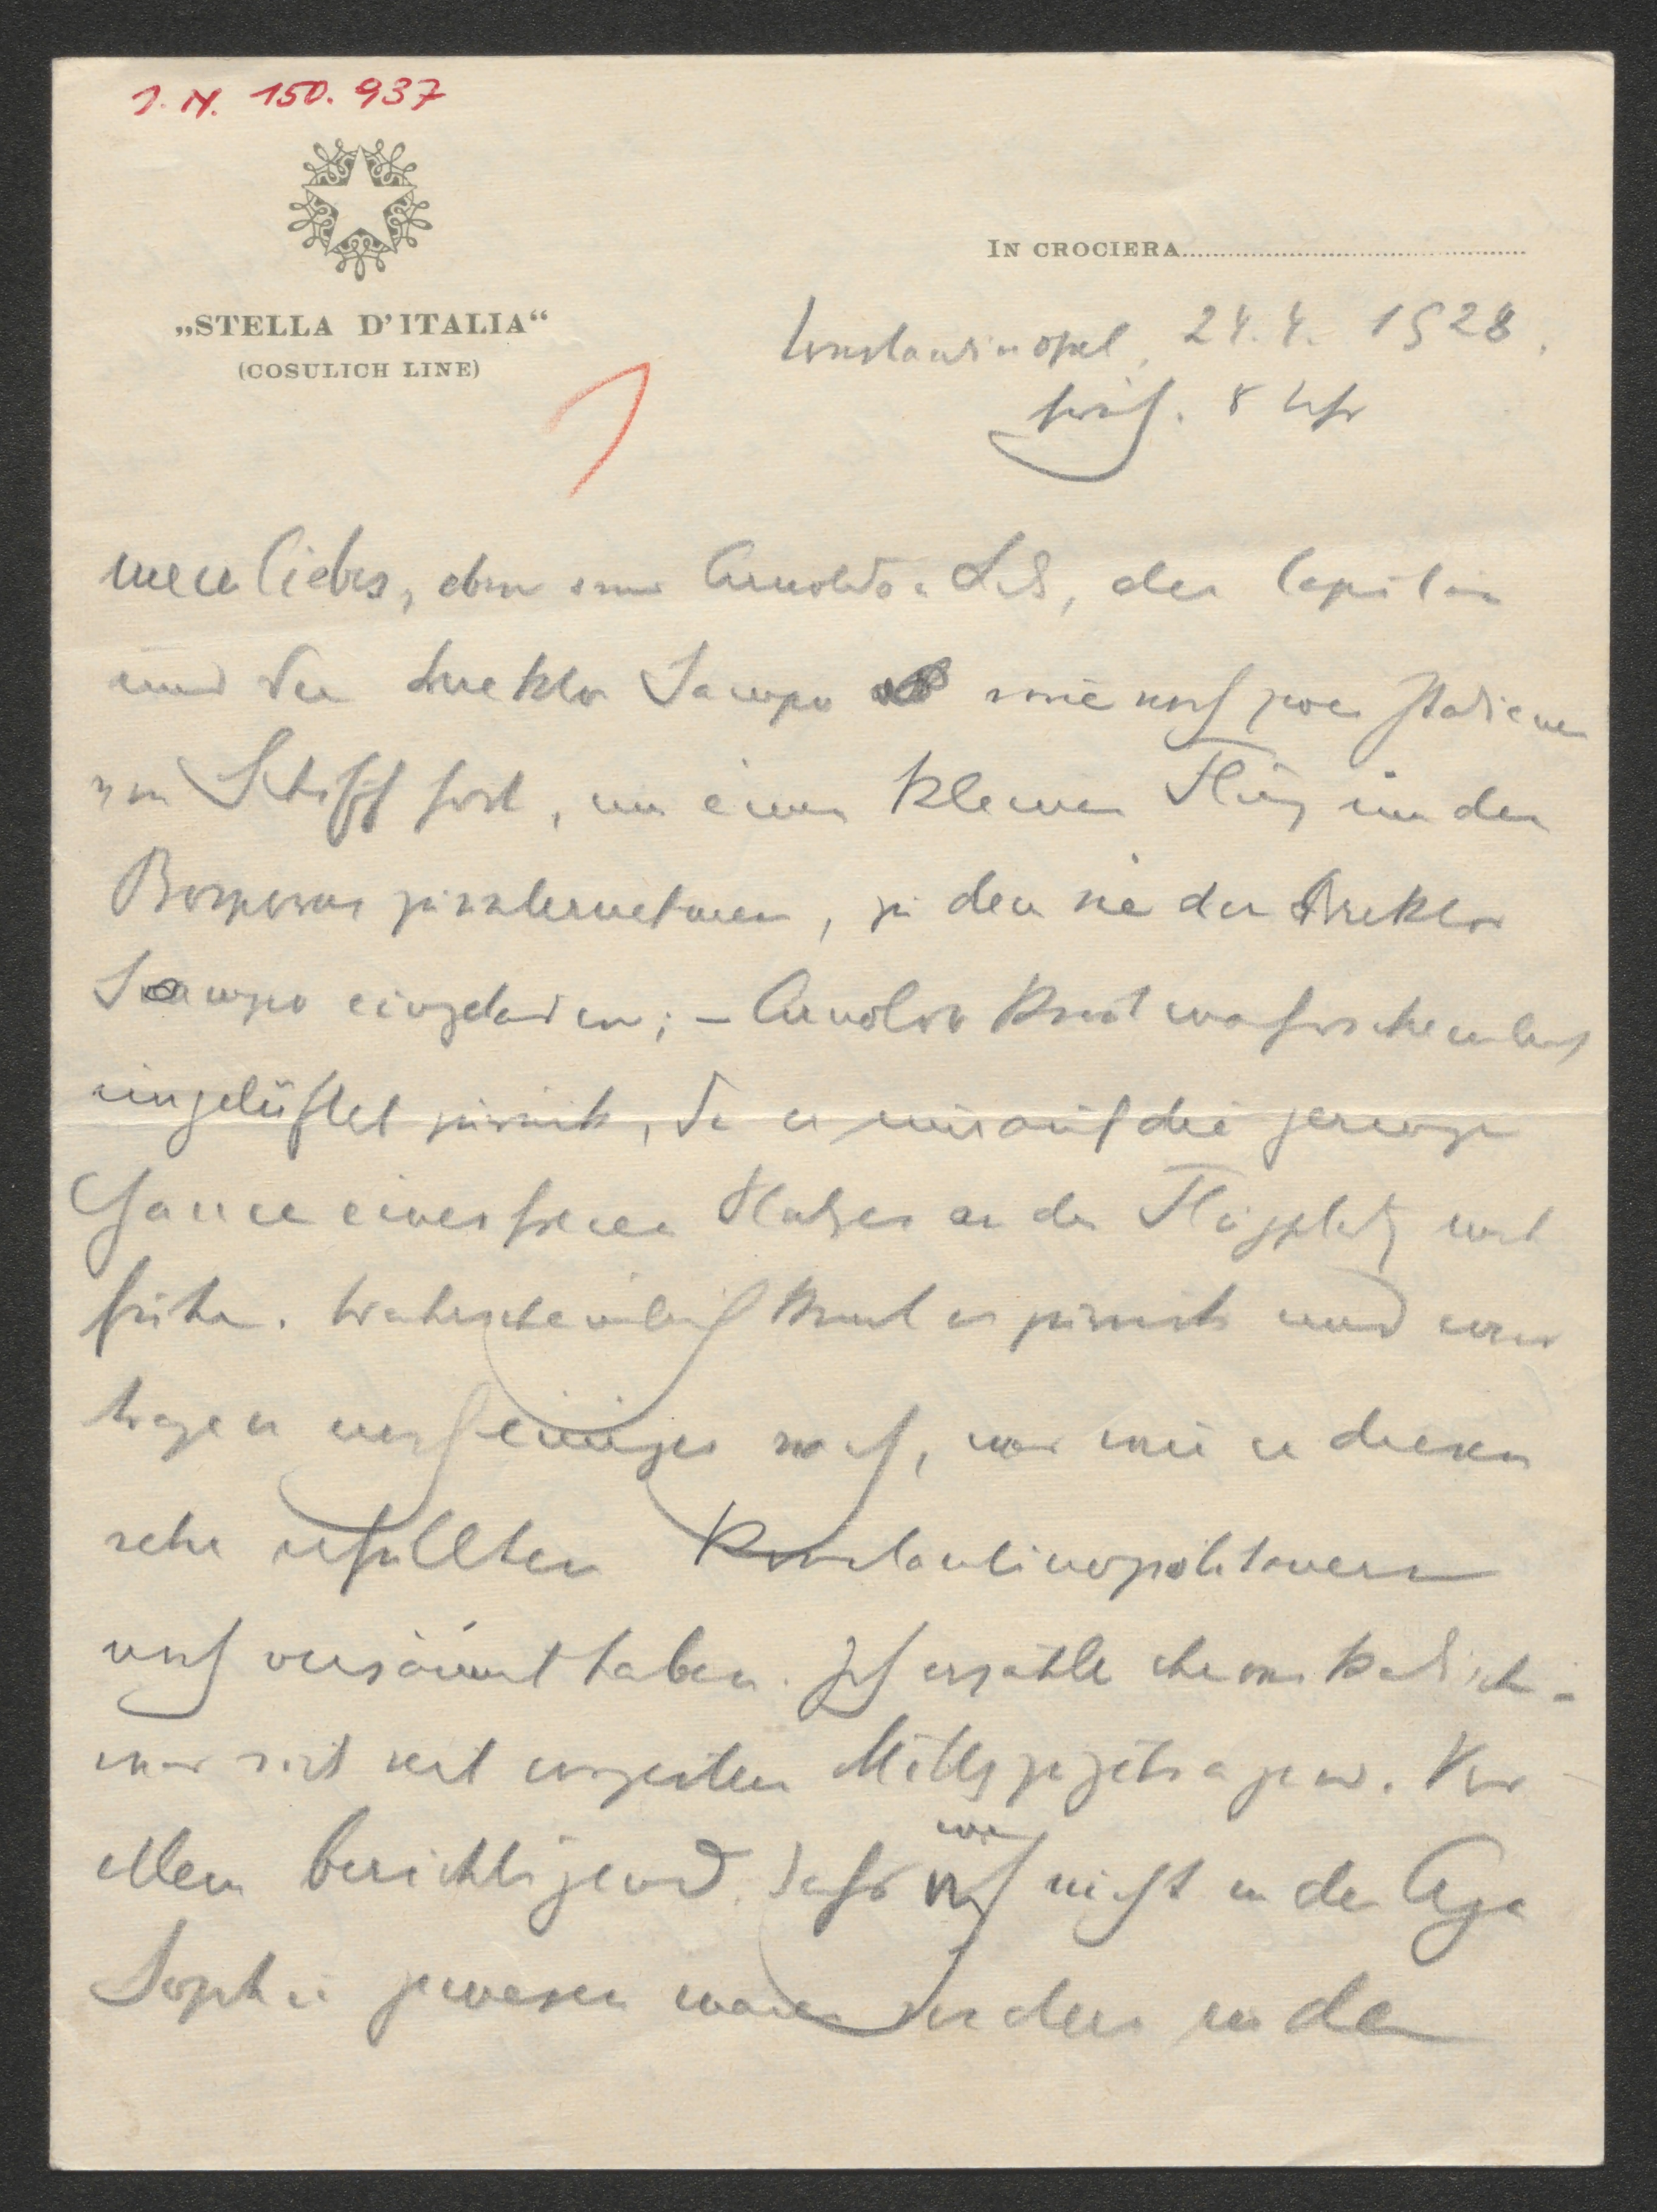 J. N. 150.937
„STELLA D'ITALIA“
(COSULICH LINE)
IN CROCIERA
1
Constantinopel, 24. 4. 1928.
früh. 8 Uhr
mein Liebes, eben sind Arnoldo u Lili, der Capitän
und der Direktor Sampo sowie noch zwei Italiener
vom Schiff fort, um einen kleinen Flug über den
Bosporus zu unternehmen, zu dem sie der Direktor
Sampo eingeladen; – Arnoldo kommt wahrscheinlich
ungelüftet zurück, da er nur auf die geringe
Chance eines freien Platzes an den Flugplatz mit
fuhr. Wahrscheinlich kommt er zurück und wir
tragen noch einiges nach, was wir in diesen
sehr erfüllten Konstantinopolitanern
noch versäumt haben. Ich erzähle chronikalisch –
was sich seit vorgestern Mittg zugetragen. Vor
allem berichtigend, dafs wir noch nicht in der Aya
Sophia gewesen waren sondern in der